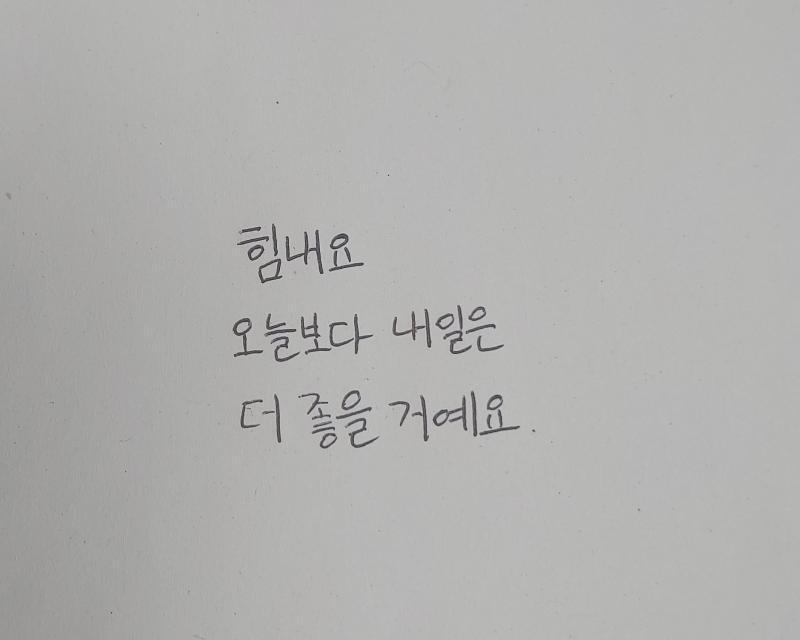 힘내요
오늘보다 내일은
더 좋을 거예요.